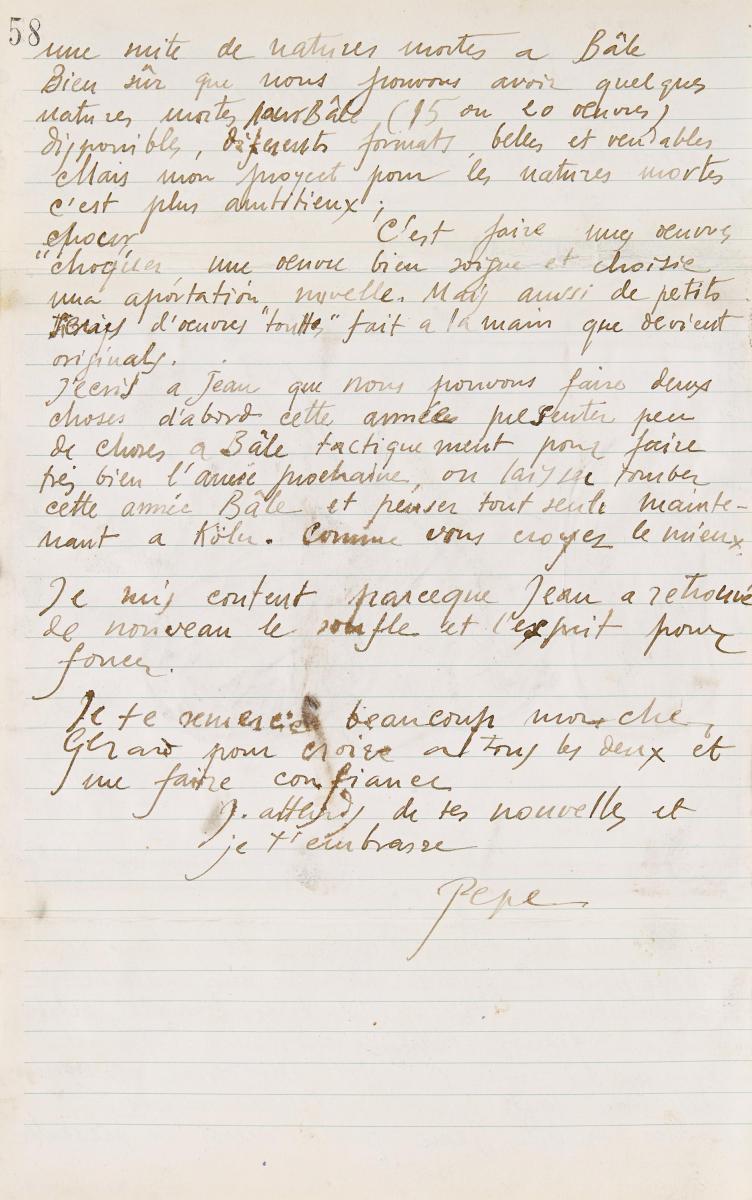 58
une suite de natures mortes a Bâle
Bien sûr que nous pouvons avoir quelques
natures mortes pour Bâle (15 ou 20 oeuvres)
disponibles, diferents formats, belles et vendables
Mais mon proyect pour les natures mortes
c'est plus ambitieux;
choesir C'est faire unes oeuvres
"choquer une oeuvre bien soigne et choisie
una aportatión novelle. Mais aussi de petits
d'oeuvres "touttes" fait a la main que devient
originals.
J'ecris a Jean que nous pouvons faire deux
choses d'abord cette année presenter peu
de choses a Bâle tactiquement pour faire
tres bien l'année prochaine, ou laisser tomber
cette année Bâle et penser tout seule mainte-
nant a Köln. Comme vous croyez le mieux.
Je suis content parceque Jean a retrouvé
de nouveau le soufle et l'esprit pour
foncer.
Je te remercie beaucoup mon cher,
Gerard pour croire a tous les deux et
me faire confiance
J'attends de tes nouvelles et
je t'embrasse
Pepe